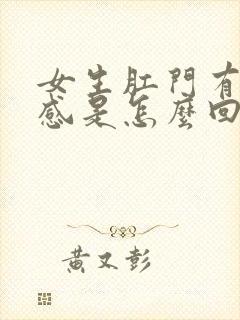 女生肛門有
感是怎麼回
黃又彭